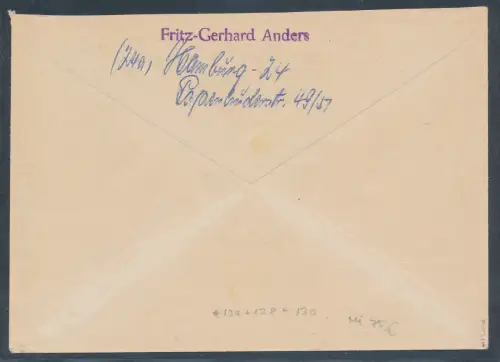 Fritz-Gerhard Anders
(24a) Hamburg-24
Papenhuderstr. 49/51
*130+128+130
Mi 75€